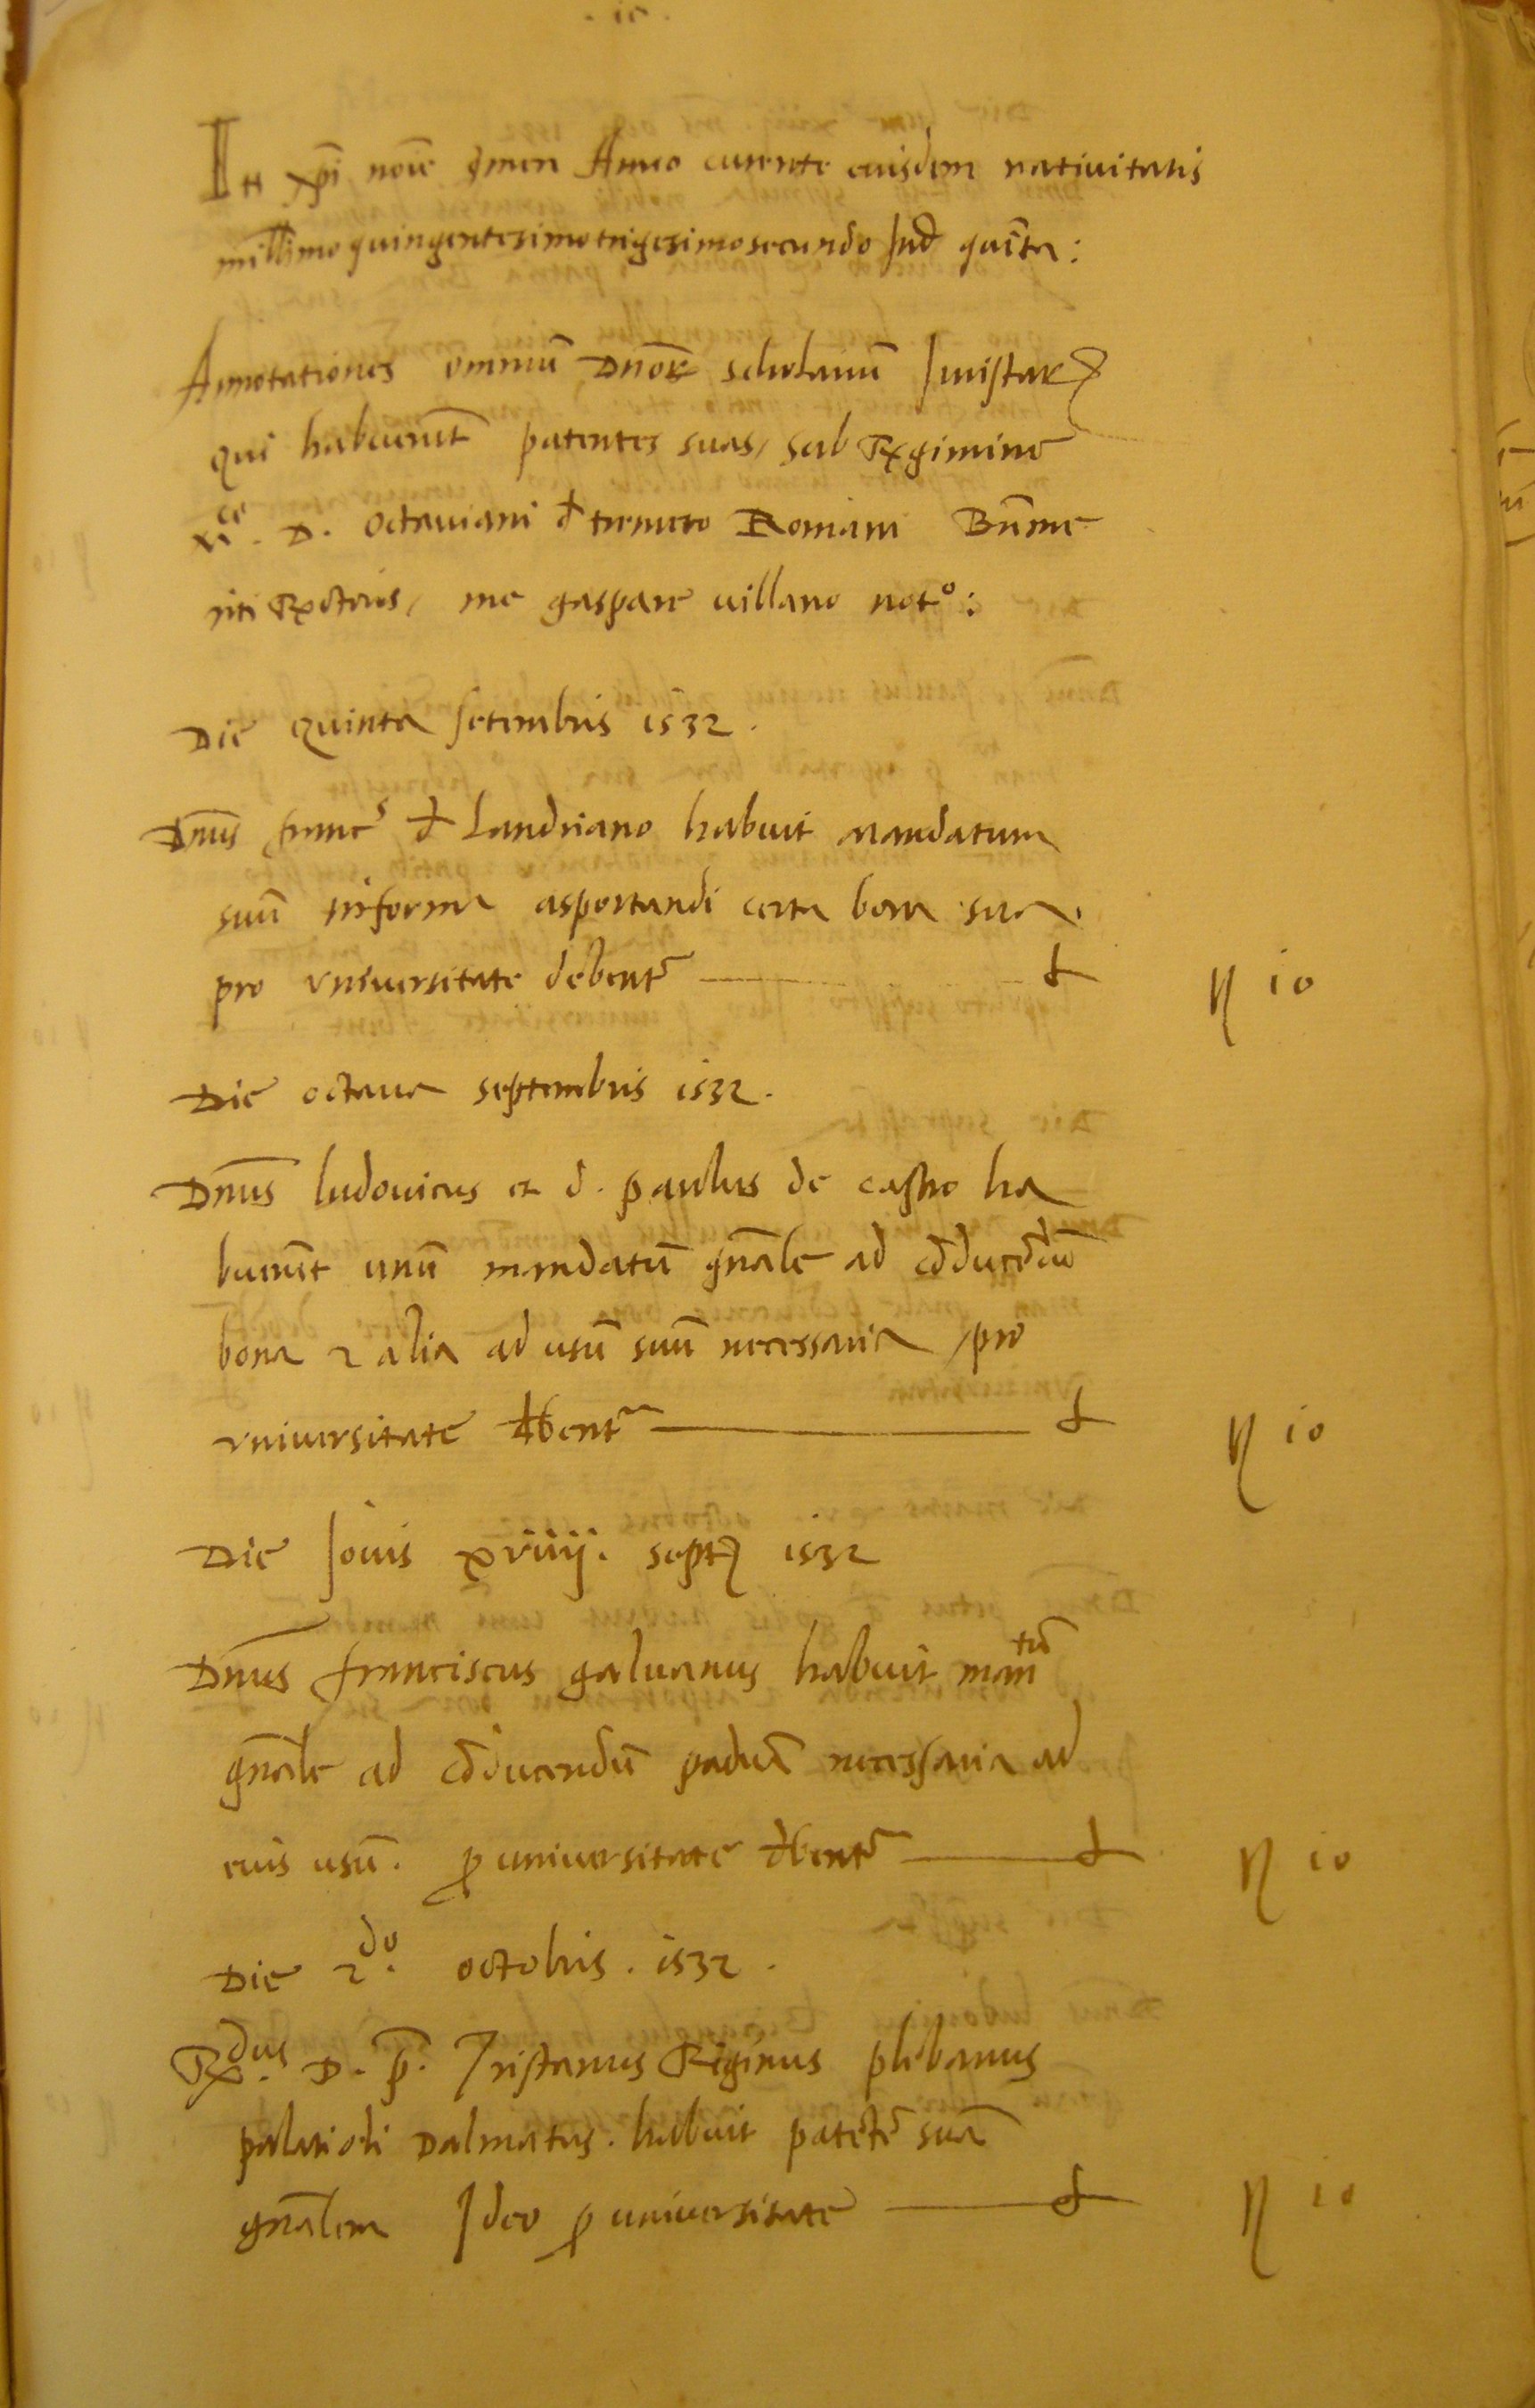 In xpi noīe Amen Anno currente eiusdem nativitatis
millimo quingentesimo trigesimo secundo Ind quīta:
Annotationes omniū Dnōr scholariū Iuristar
qui habuerūt patentes suas, sub Regimine
D. Octaviani đ Romani Būme
riti Rectoris, me gaspare villano notº:
Die quinta setembris 1532.
Dnūs francˢ đ Landriano habuit mandatum
suū in forma asportandi certa bona sua.
pro vniversitate debentr ß 10
Die octava septembris 1532.
Dnūs ludovicus et d. paulus de castro ha
buerūt unū mandatū gnāle ad cōducēdū
bona 2 alia ad usū suū necessaria, pro
vniversitate đbentr ß 10
Die Iovis xviiij. septē 1532
Dnūs franciscus galvanus habuit mantū
gnāle ad cōducendū paduā necessaria ad
eius usū. p universitate đbentr ß 10
Die 2do. octobris. 1532.
Rdus. D. p. Tristanus Reginus plebanus
palatioli Dalmatus. habuit patētē suā
gnālem Ideo p universitate ß 10